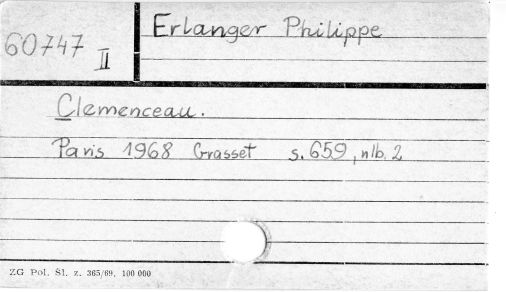 60747 II
Erlanger Philippe
Clemenceau.
Paris 1968 Grasset s. 659, nlb. 2
ZG Pol. Śl. z. 365/69. 100 000